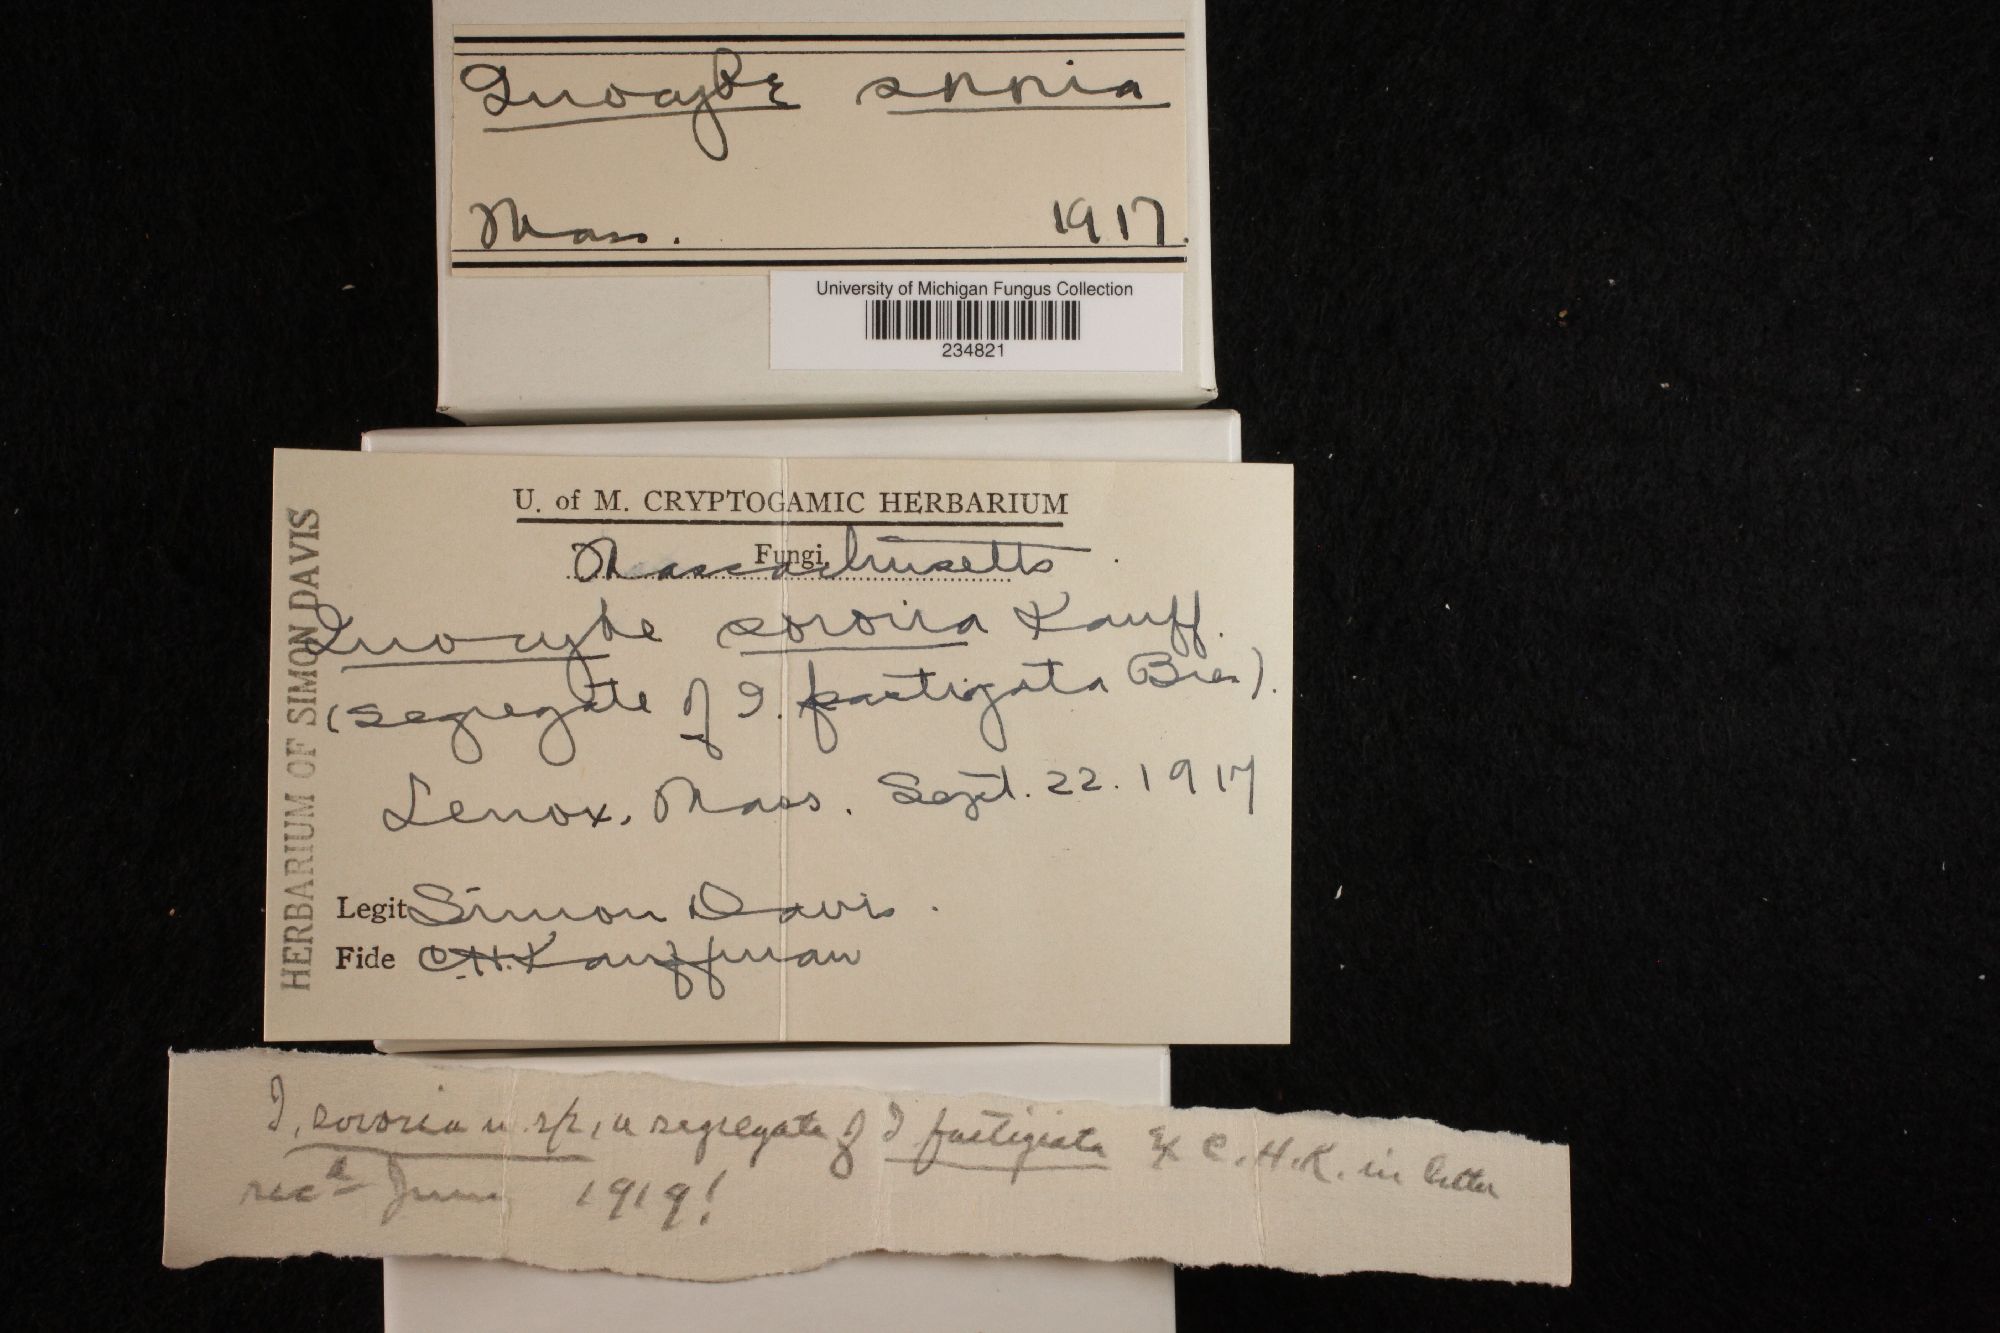 Inocybe sororia
Mass. 1917.
University of Michigan Fungus Collection
234821
HERBARIUM OF SIMON DAVIS
U. of M. CRYPTOGAMIC HERBARIUM
Fungi
Massachusetts
Inocybe sororia Kauff.
(segregate of I. fastigata Bres).
Lenox, Mass. Sept. 22. 1917
Legit Simon Davis.
Fide C.H. Kauffman
I, sororia n. sp, a segregate of I fastigiata Ex C. H. K. in letter
recd June 1919!